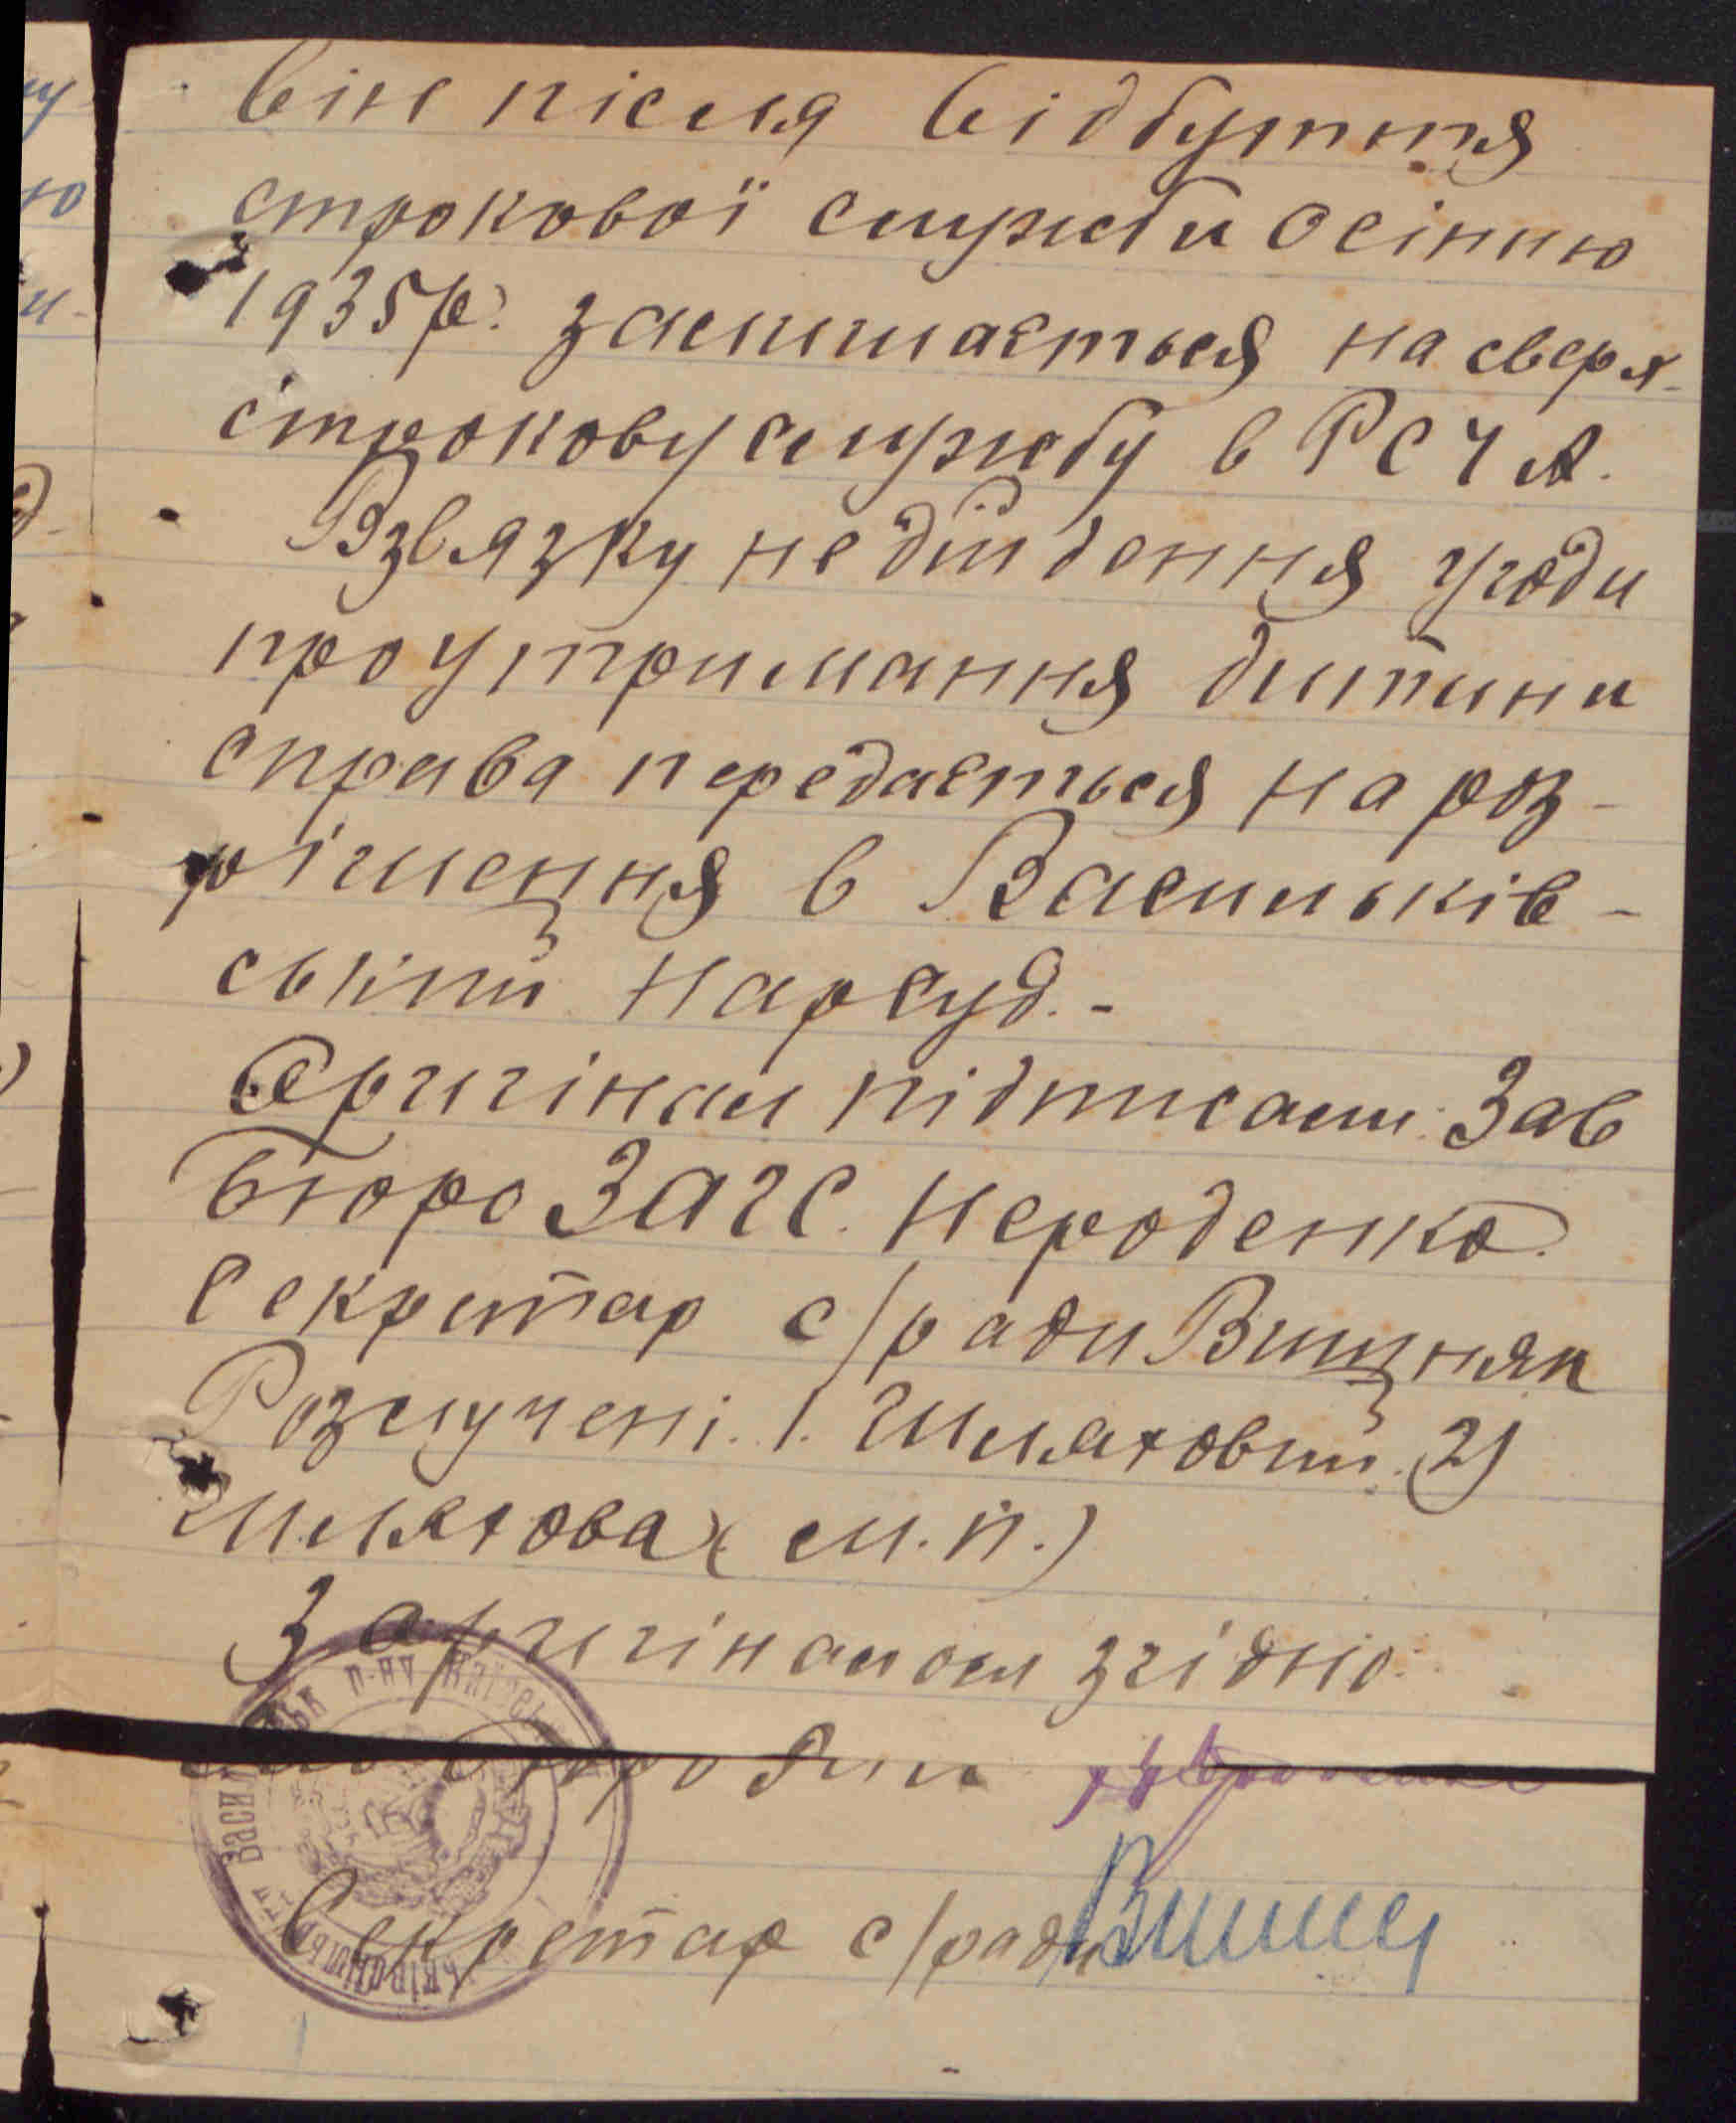 він після відбуття
строкової служби осінню
1935р. залишається на сверх-
строкову службу в РСЧА.
Взвязку недійдення угоди
про утримання дитини
справа передається на роз-
рішення в Васильків-
ський нарсуд.-
Оригінал підписали: Зав
бюро ЗАГС. Нероденко.
Секретар с/ради Вишняк
Розлучені. 1. Шляховий. 2)
Шляхова (м.п.)
З оригіналом згідно:
Секретар с/ради